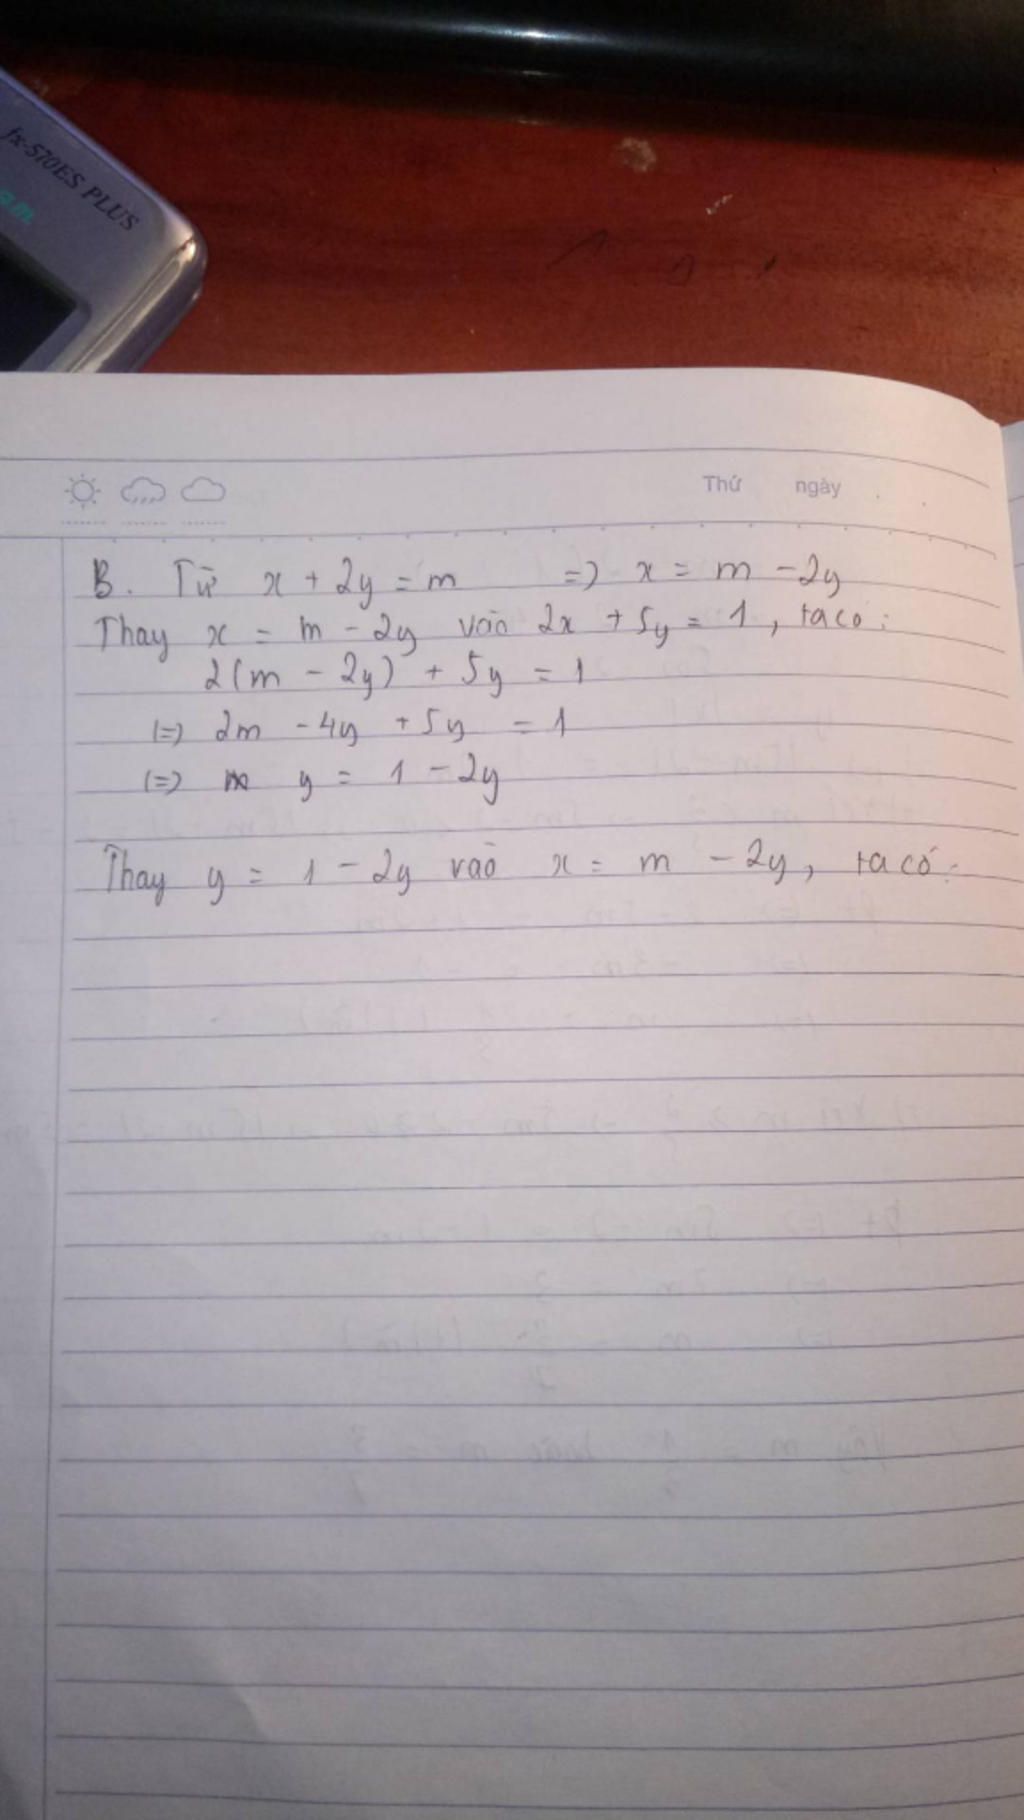 fx-570ES PLUS
Thứ ngày
B. Từ x + 2y = m => x = m - 2y
Thay x = m - 2y vào 2x + 5y = 1, ta có:
2(m - 2y) + 5y = 1
(=) 2m - 4y + 5y = 1
(=) y = 1 - 2y
Thay y = 1 - 2y vào x = m - 2y, ta có: